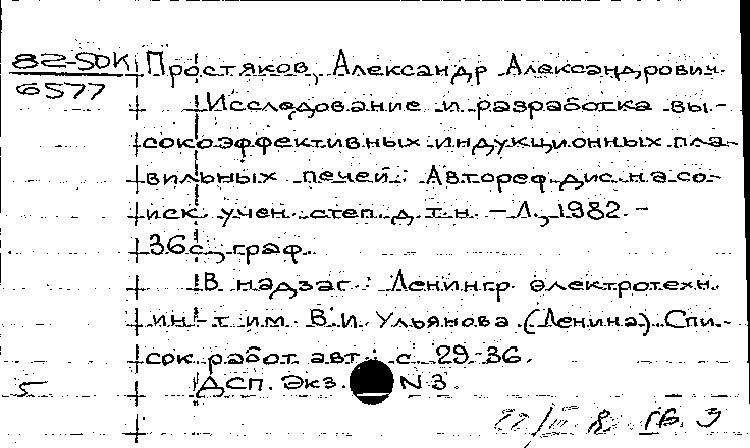 82-5DK Простяков, Александр Александрович.
6577
Исследование и разработка вы-
сокоэффективных индукционных пла-
вильных печей: Автореф. дис. на со-
иск. учен. степ. д.т.н. - Л., 1982. -
36с., граф.
В надзаг.: Ленингр. электротехн.
ин-т им. В.И. Ульянова (Ленина). Спи-
сок работ авт.: с. 29-36.
5 ДСП. Экз. N3.
22/III